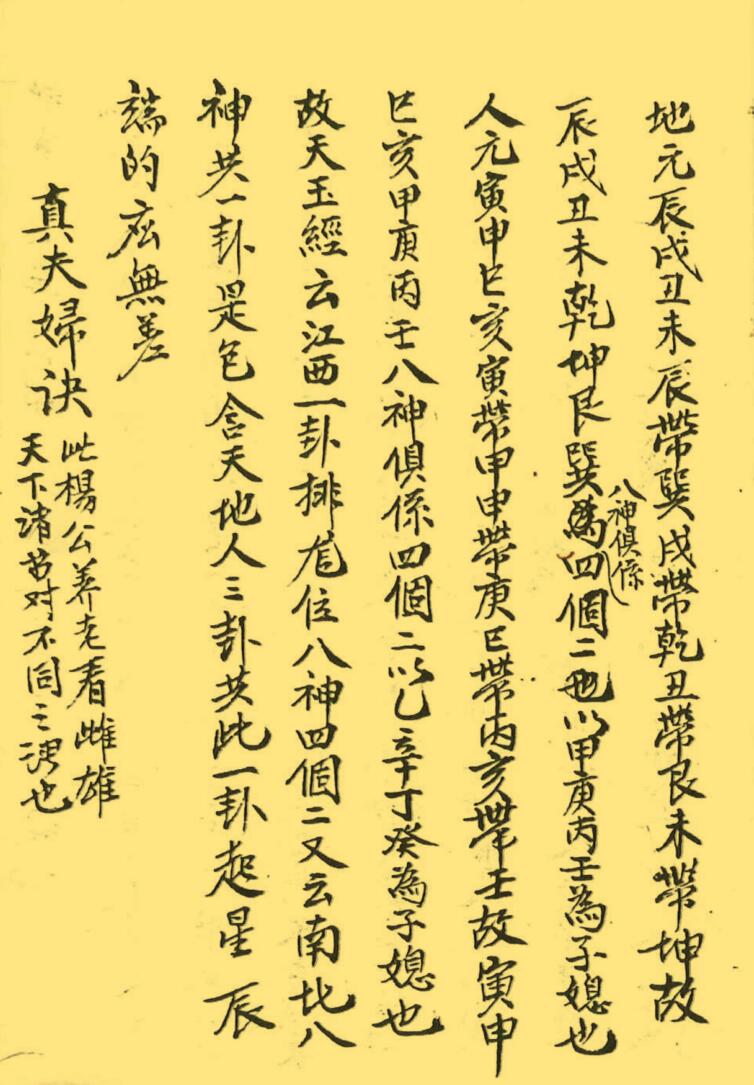 地元辰戌丑未辰帶巽戌帶乾丑帶艮未帶坤故
辰戌丑未乾坤艮巽為四個二也以甲庚丙壬為子媳也
八神俱係
人元寅申巳亥寅帶甲申帶庚巳帶丙亥帶壬故寅申
巳亥甲庚丙壬八神俱係四個二以乙辛丁癸為子媳也
故天玉經云江西一卦排龙位八神四個二又云南北八
神共一卦是包含天地人三卦共此一卦起星辰
端的應無差
真夫婦訣
此楊公养老看雌雄
天下諸書对不同之理也